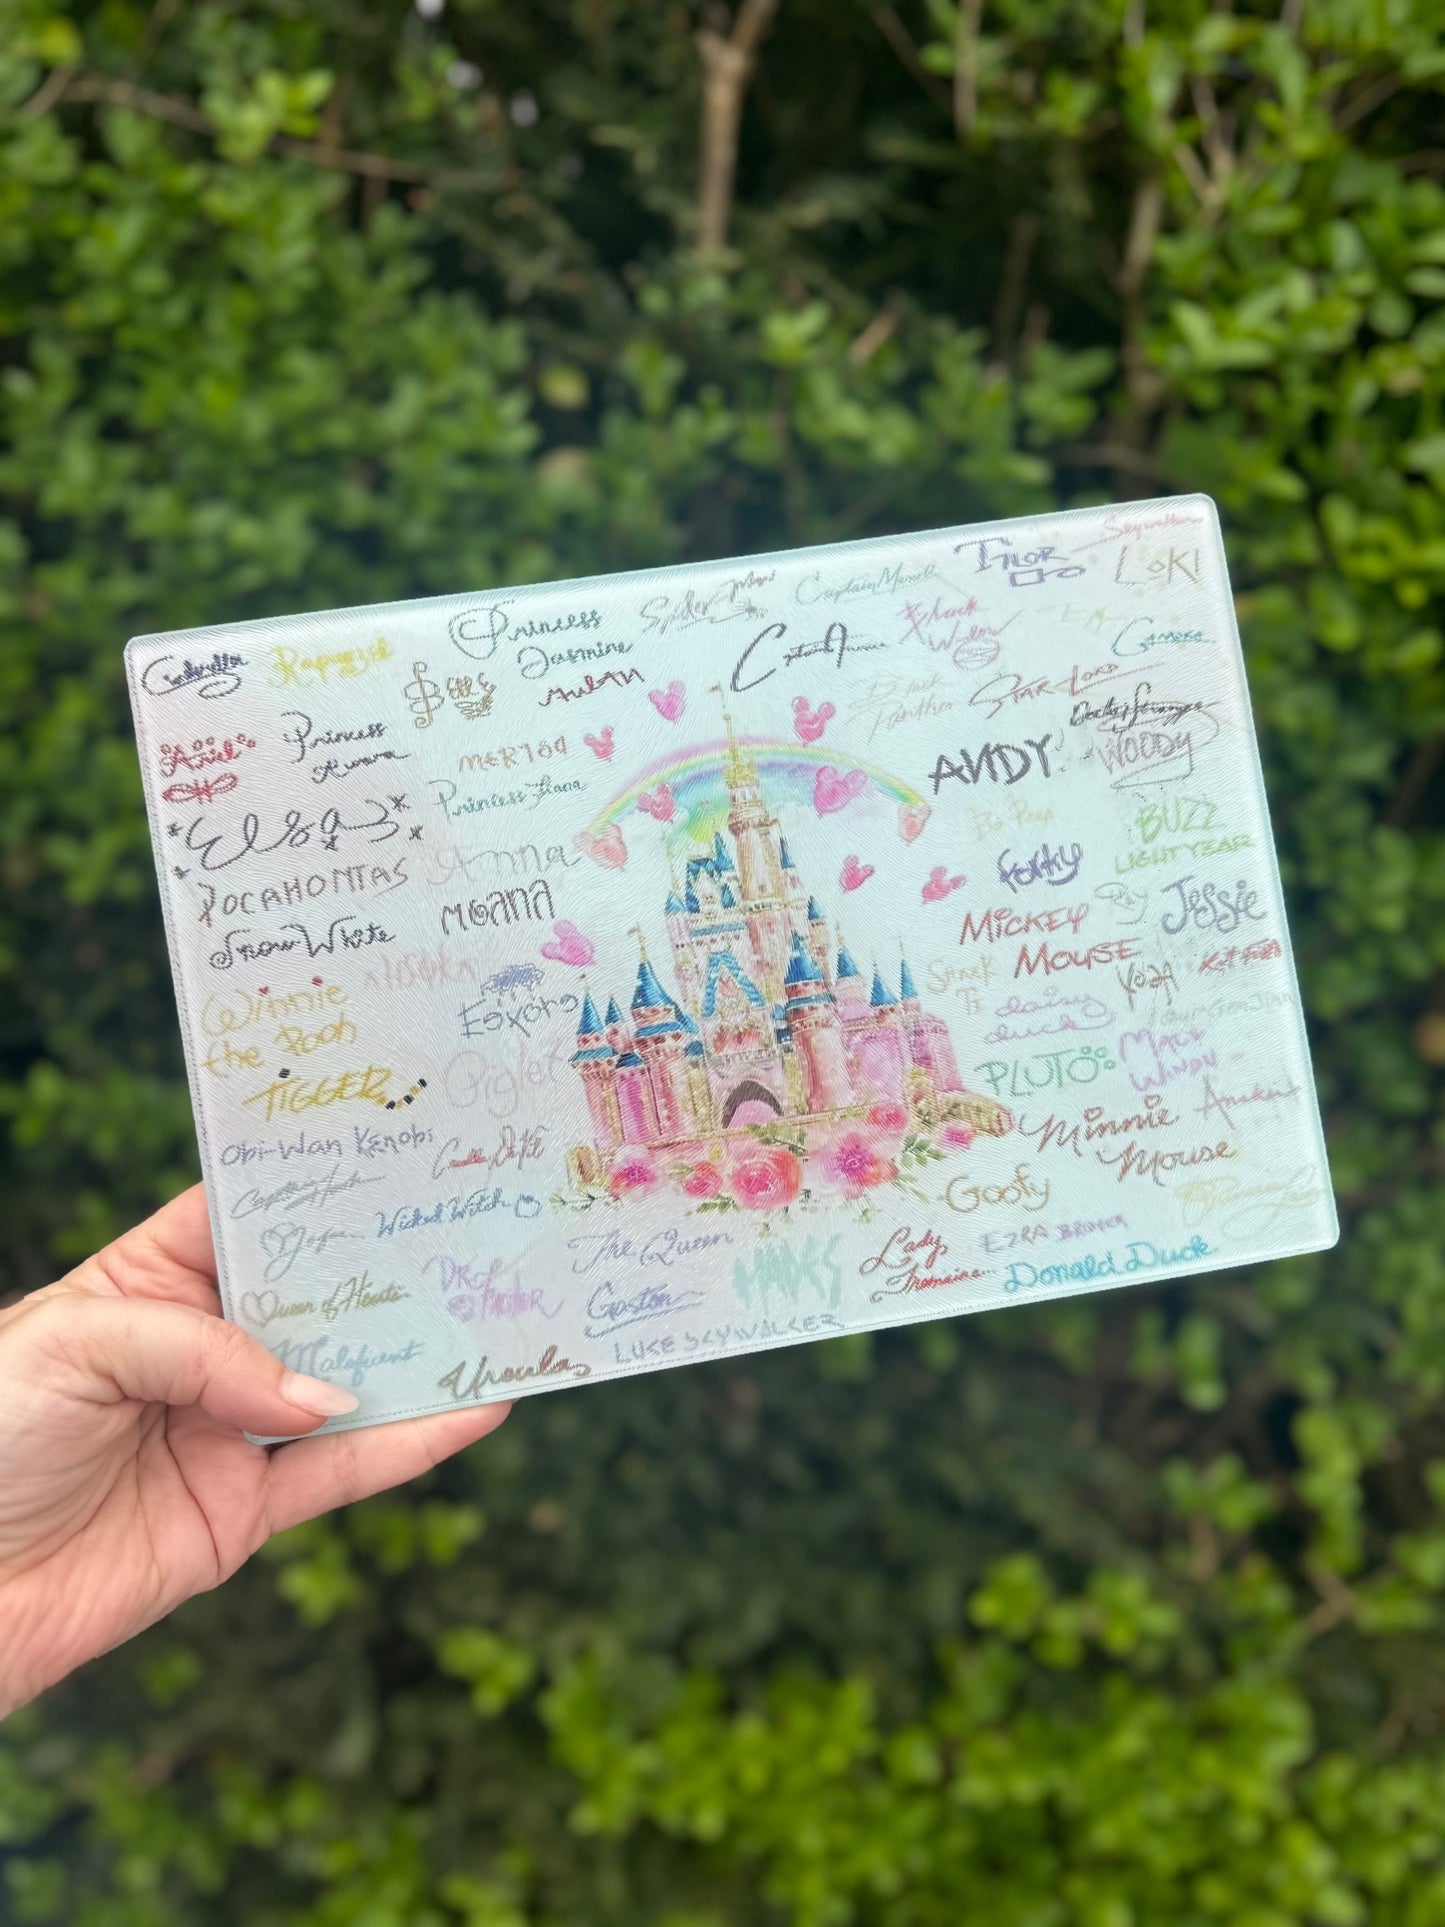 Cinderella
Rapunzel
Princess
Jasmine
Spider
Captain Marvel
THOR
Skywalker
LOKI
Belle
Mulan
Black
Widow
Gamora
Ariel
Princess
Aurora
MERIDA
Princess Tiana
Black
Panther
STAR-LORD
Doctor Strange
ANDY
WOODY
Elsa
Anna
Bo Peep
BUZZ
LIGHTYEAR
POCAHONTAS
MOANA
Forky
Jessie
Snow White
MICKEY
MOUSE
Winnie
the Pooh
Eeyore
daisy
duck
Yoda
TIGGER
Piglet
PLUTO
MACE
WINDU
Obi-Wan Kenobi
Minnie
Mouse
Anakin
Captain Hook
Wicked Witch
Goofy
The Queen
Lady
Tremaine
EZRA BRIDGER
Donald Duck
Queen of Hearts
Gaston
Maleficent
Ursula
LUKE SKYWALKER